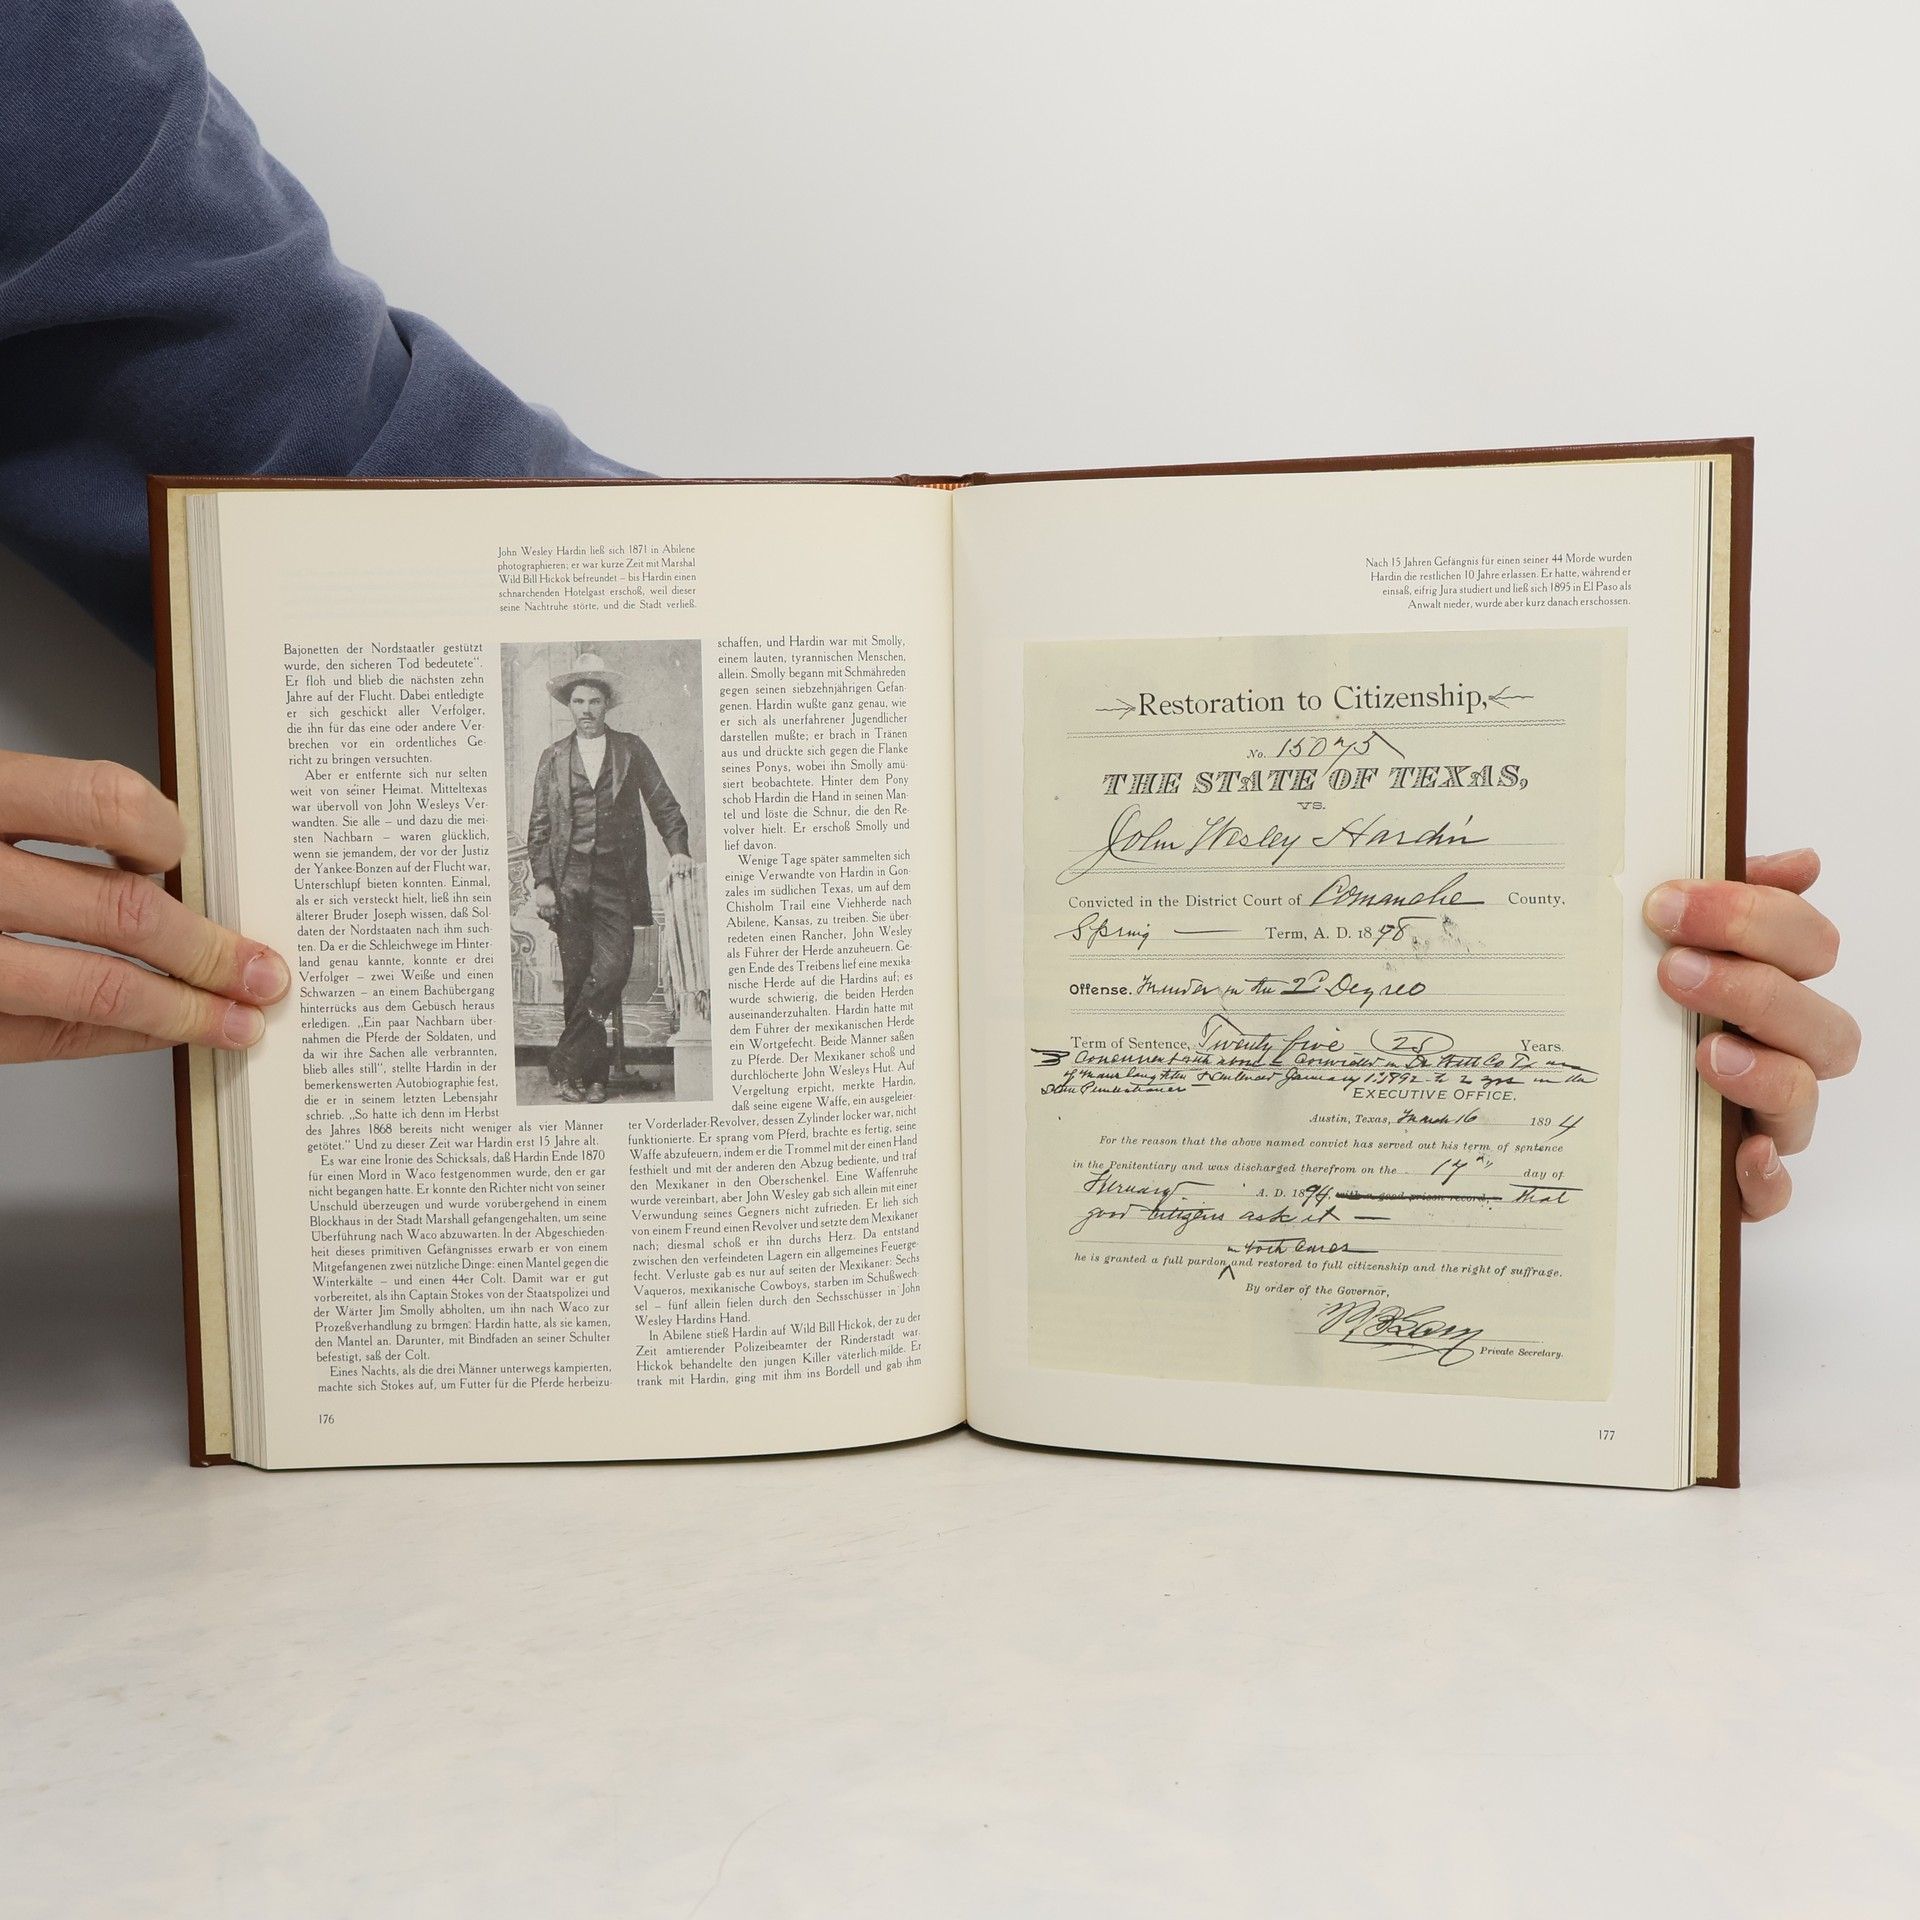 John Wesley Hardin ließ sich 1871 in Abilene
photographieren; er war kurze Zeit mit Marshal
Wild Bill Hickok befreundet – bis Hardin einen
schnarchenden Hotelgast erschoß, weil dieser
seine Nachtruhe störte, und die Stadt verließ.
Bajonetten der Nordstaatler gestützt
wurde, den sicheren Tod bedeutete“.
Er floh und blieb die nächsten zehn
Jahre auf der Flucht. Dabei entledigte
er sich geschickt aller Verfolger,
die ihn für das eine oder andere Ver-
brechen vor ein ordentliches Ge-
richt zu bringen versuchten.
Aber er entfernte sich nur selten
weit von seiner Heimat. Mitteltexas
war übervoll von John Wesleys Ver-
wandten. Sie alle – und dazu die mei-
sten Nachbarn – waren glücklich,
wenn sie jemandem, der vor der Justiz
der Yankee-Bonzen auf der Flucht war,
Unterschlupf bieten konnten. Einmal,
als er sich versteckt hielt, ließ ihn sein
älterer Bruder Joseph wissen, daß Sol-
daten der Nordstaaten nach ihm such-
ten. Da er die Schleichwege im Hinter-
land genau kannte, konnte er drei
Verfolger – zwei Weiße und einen
Schwarzen – an einem Bachübergang
hinterrücks aus dem Gebüsch heraus
erledigen. „Ein paar Nachbarn über-
nahmen die Pferde der Soldaten, und
da wir ihre Sachen alle verbrannten,
blieb alles still“, stellte Hardin in der
bemerkenswerten Autobiographie fest,
die er in seinem letzten Lebensjahr
schrieb. „So hatte ich denn im Herbst
des Jahres 1868 bereits nicht weniger als vier Männer
getötet.“ Und zu dieser Zeit war Hardin erst 15 Jahre alt.
Es war eine Ironie des Schicksals, daß Hardin Ende 1870
für einen Mord in Waco festgenommen wurde, den er gar
nicht begangen hatte. Er konnte den Richter nicht von seiner
Unschuld überzeugen und wurde vorübergehend in einem
Blockhaus in der Stadt Marshall gefangengehalten, um seine
Überführung nach Waco abzuwarten. In der Abgeschieden-
heit dieses primitiven Gefängnisses erwarb er von einem
Mitgefangenen zwei nützliche Dinge: einen Mantel gegen die
Winterkälte – und einen 44er Colt. Damit war er gut
vorbereitet, als ihn Captain Stokes von der Staatspolizei und
der Wärter Jim Smolly abholten, um ihn nach Waco zur
Prozeßverhandlung zu bringen: Hardin hatte, als sie kamen,
den Mantel an. Darunter, mit Bindfaden an seiner Schulter
befestigt, saß der Colt.
Eines Nachts, als die drei Männer unterwegs kampierten,
machte sich Stokes auf, um Futter für die Pferde herbeizu-
schaffen, und Hardin war mit Smolly,
einem lauten, tyrannischen Menschen,
allein. Smolly begann mit Schmähreden
gegen seinen siebzehnjährigen Gefan-
genen. Hardin wußte ganz genau, wie
er sich als unerfahrener Jugendlicher
darstellen mußte; er brach in Tränen
aus und drückte sich gegen die Flanke
seines Ponys, wobei ihn Smolly amü-
siert beobachtete. Hinter dem Pony
schob Hardin die Hand in seinen Man-
tel und löste die Schnur, die den Re-
volver hielt. Er erschoß Smolly und
lief davon.
Wenige Tage später sammelten sich
einige Verwandte von Hardin in Gon-
zales im südlichen Texas, um auf dem
Chisholm Trail eine Viehherde nach
Abilene, Kansas, zu treiben. Sie über-
redeten einen Rancher, John Wesley
als Führer der Herde anzuheuern. Ge-
gen Ende des Treibens lief eine mexika-
nische Herde auf die Hardins auf; es
wurde schwierig, die beiden Herden
auseinanderzuhalten. Hardin hatte mit
dem Führer der mexikanischen Herde
ein Wortgefecht. Beide Männer saßen
zu Pferde. Der Mexikaner schoß und
durchlöcherte John Wesleys Hut. Auf
Vergeltung erpicht, merkte Hardin,
daß seine eigene Waffe, ein ausgeleier-
ter Vorderlader-Revolver, dessen Zylinder locker war, nicht
funktionierte. Er sprang vom Pferd, brachte es fertig, seine
Waffe abzufeuern, indem er die Trommel mit der einen Hand
festhielt und mit der anderen den Abzug bediente, und traf
den Mexikaner in den Oberschenkel. Eine Waffenruhe
wurde vereinbart, aber John Wesley gab sich allein mit einer
Verwundung seines Gegners nicht zufrieden. Er lieh sich
von einem Freund einen Revolver und setzte dem Mexikaner
nach; diesmal schoß er ihn durchs Herz. Da entstand
zwischen den verfeindeten Lagern ein allgemeines Feuerge-
fecht. Verluste gab es nur auf seiten der Mexikaner: Sechs
Vaqueros, mexikanische Cowboys, starben im Schußwech-
sel – fünf allein fielen durch den Sechsschüsser in John
Wesley Hardins Hand.
In Abilene stieß Hardin auf Wild Bill Hickok, der zu der
Zeit amtierender Polizeibeamter der Rinderstadt war.
Hickok behandelte den jungen Killer väterlich-milde. Er
trank mit Hardin, ging mit ihm ins Bordell und gab ihm
176
Nach 15 Jahren Gefängnis für einen seiner 44 Morde wurden
Hardin die restlichen 10 Jahre erlassen. Er hatte, während er
einsaß, eifrig Jura studiert und ließ sich 1895 in El Paso als
Anwalt nieder, wurde aber kurz danach erschossen.
Restoration to Citizenship,
No. 15075
THE STATE OF TEXAS,
VS.
John Wesley Hardin
Convicted in the District Court of Comanche County,
Spring Term, A. D. 1878
Offense, Murder in the 2d Degree
Term of Sentence, Twenty five (25) Years.
Concurrent with above
of Manslaughter & Sentenced January 1st 1892 to 2 yrs in the
State Penitentiary
EXECUTIVE OFFICE,
Austin, Texas, March 16 1894
For the reason that the above named convict has served out his term of sentence
in the Penitentiary and was discharged therefrom on the 17th day of
February A. D. 1894, with a good prison record, that
good citizens ask it –
in both cases
he is granted a full pardon and restored to full citizenship and the right of suffrage.
By order of the Governor,
Private Secretary.
177